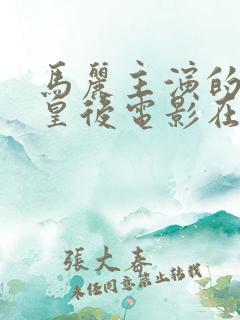 馬麗主演的
皇後電影在
張大春
未經同意禁止轉載